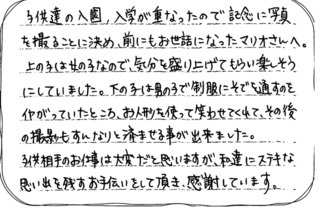 子供達の入園、入学が重なったので記念に写真
を撮ることに決め、前にもお世話になったマリオさんへ。
上の子は女の子なので、気分を盛り上げてもらい楽しそう
にしていました。下の子は男の子で制服にそでを通すのを
イヤがっていたところ、お人形を使って笑わせてくれて、その後
の撮影もすんなりと済ませる事が出来ました。
子供相手のお仕事は大変だと思いますが、私達にステキな
思い出を残すお手伝いをして頂き、感謝しています。